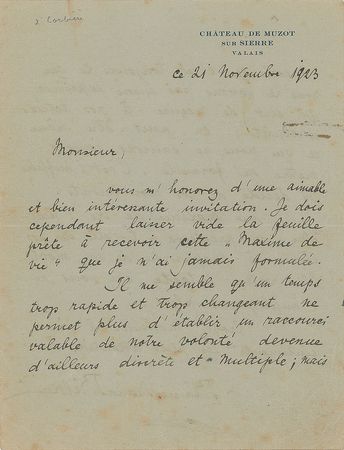 à Corbière
CHÂTEAU DE MUZOT
SUR SIERRE
VALAIS
ce 21 Novembre 1923
Monsieur,
vous m'honorez d'une aimable
et bien intéressante invitation. Je dois
cependant laisser vide la feuille
prête à recevoir cette „Maxime de
vie" que je n'ai jamais formulée.
Il me semble qu'un temps
trop rapide et trop changeant ne
permet plus d'établir un raccourci
valable de notre volonté devenue
d'ailleurs discrète et multiple; mais